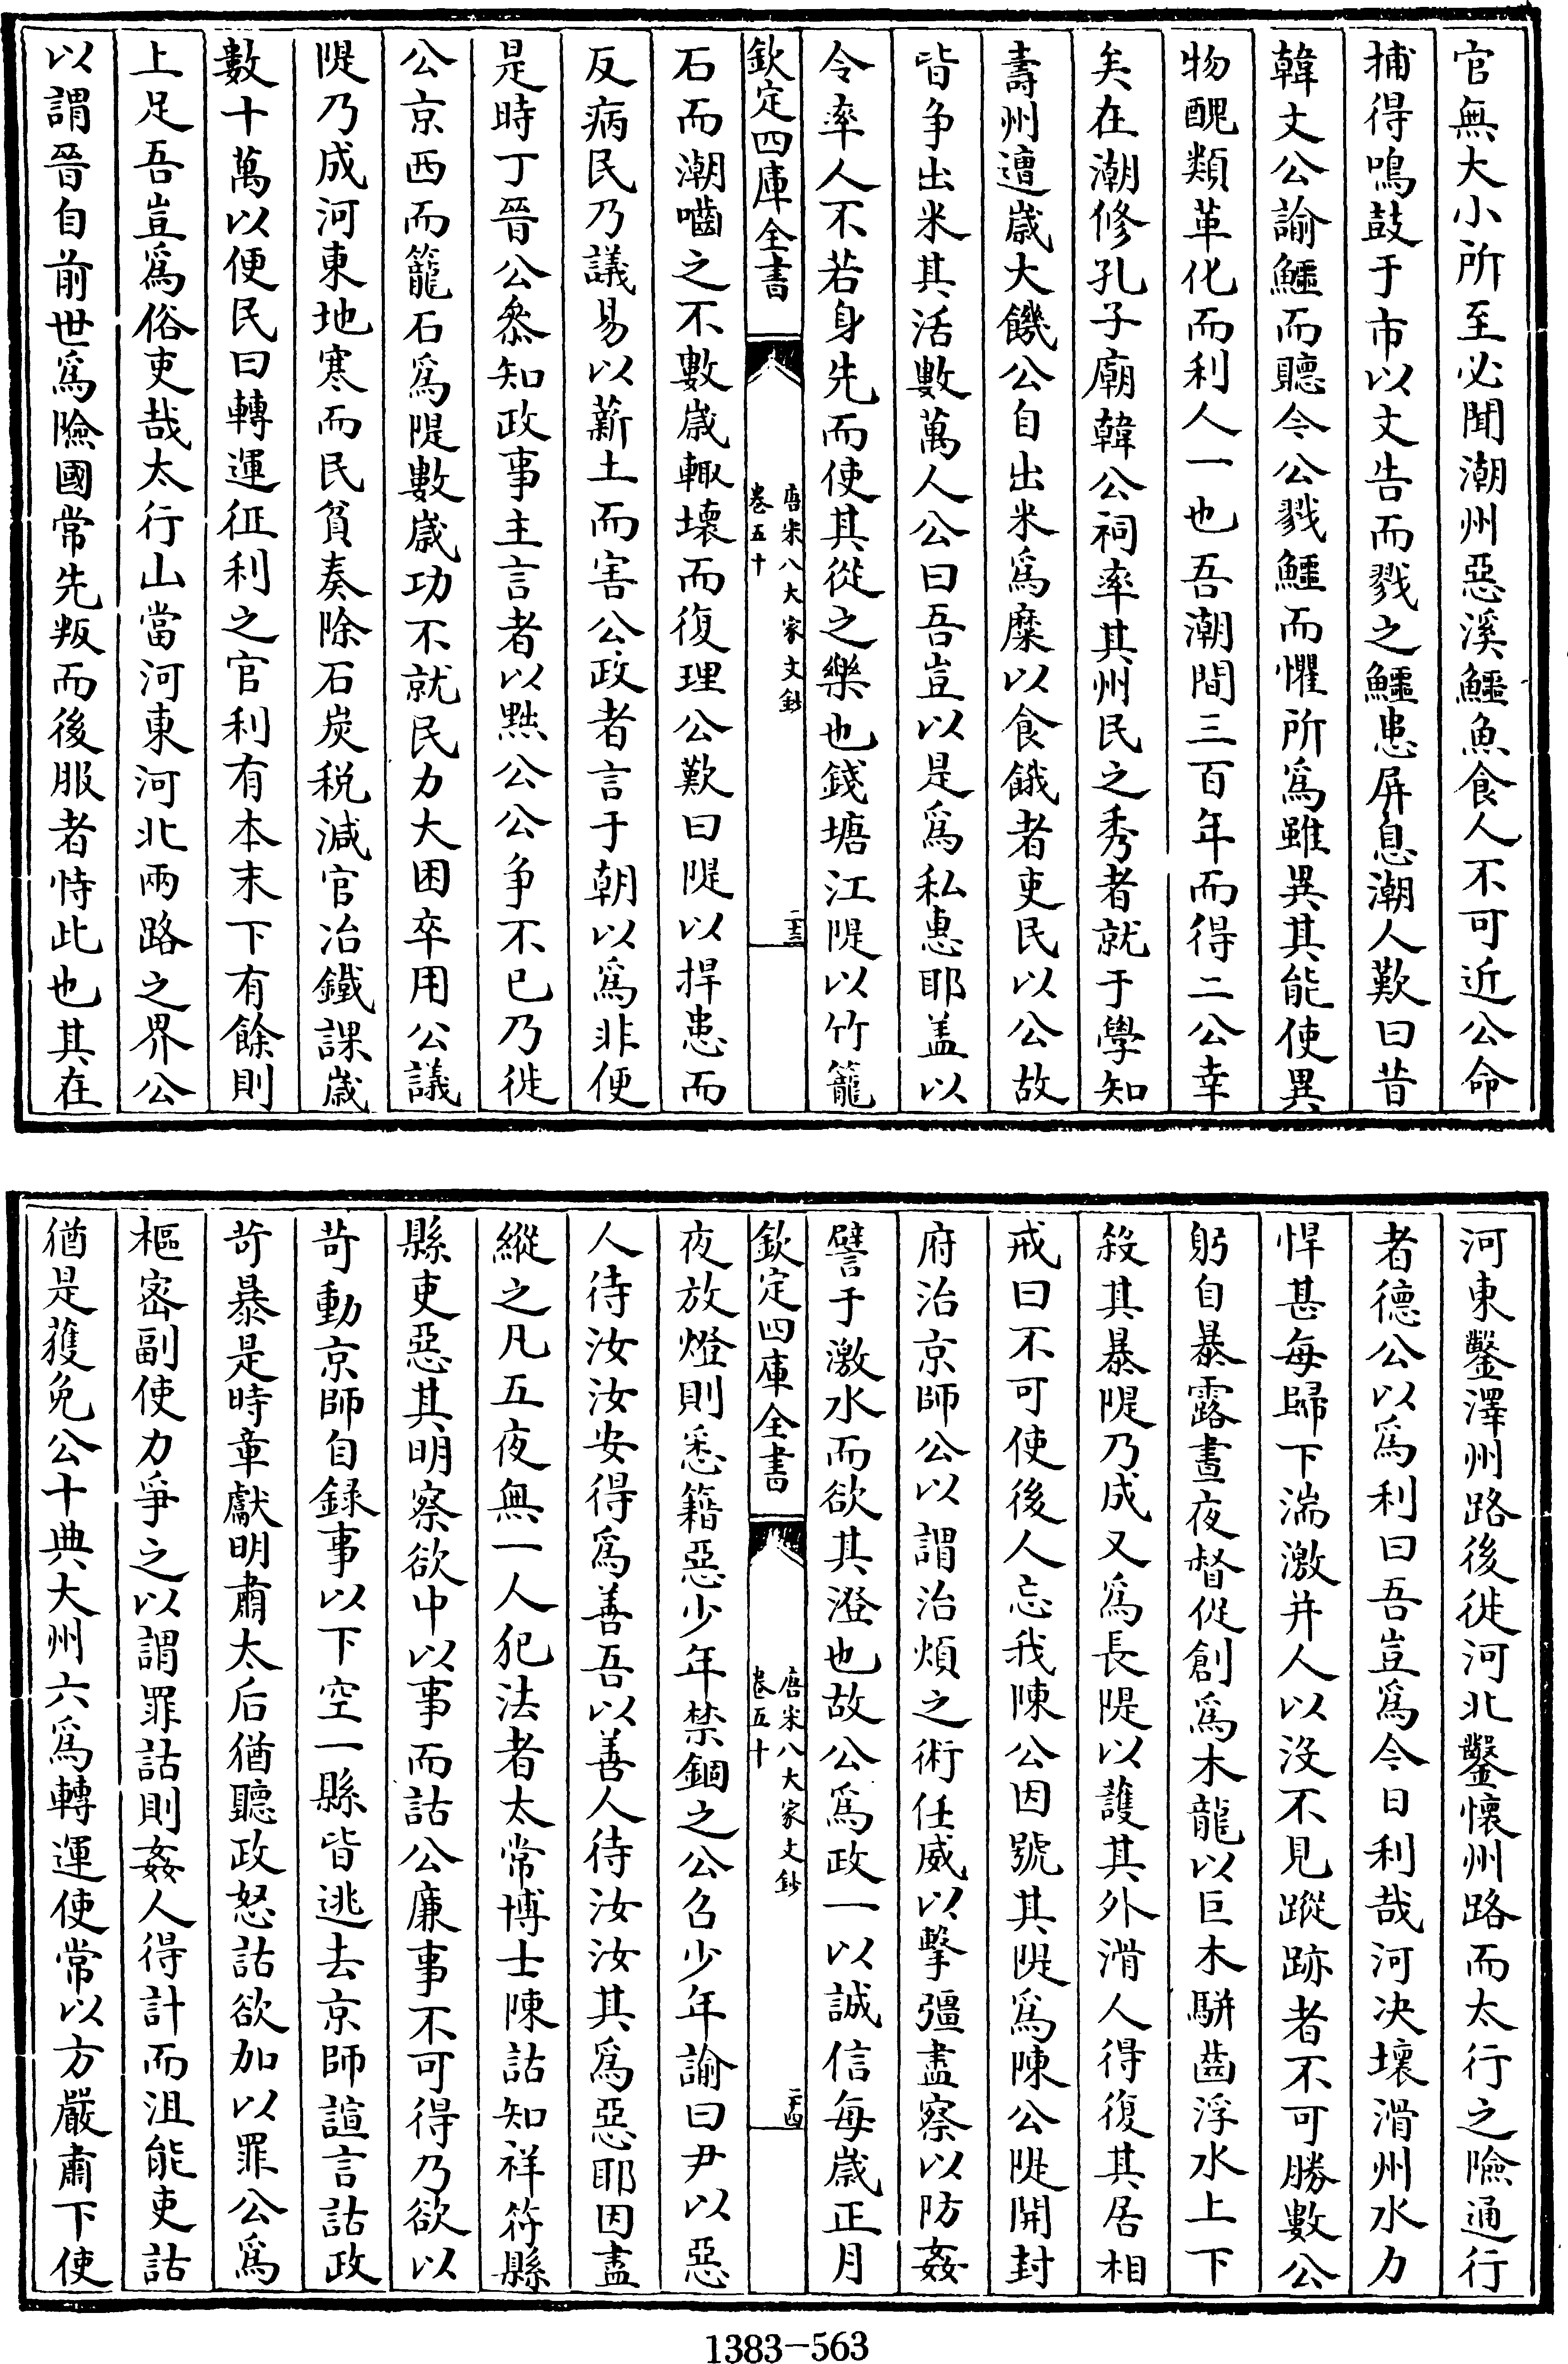 官無大小所至必聞潮州惡溪鱷魚食人不可近公命
捕得鳴鼓于市以文告而戮之鱷患屏息潮人歎曰昔
韓文公諭鱷而聽令公戮鱷而懼所爲雖異其能使異
物醜類革化而利人一也吾潮間三百年而得二公幸
矣在潮修孔子廟韓公祠率其州民之秀者就于學知
壽州遭歲大饑公自出米爲糜以食餓者吏民以公故
皆争出米其活數萬人公曰吾豈以是爲私惠耶盖以
令率人不若身先而使其從之樂也錢塘江隄以竹籠
欽定四庫全書
唐宋八大家文鈔
卷五十
二十三
石而潮囓之不數歲輙壞而復理公歎曰隄以捍患而
反病民乃議易以薪土而害公政者言于朝以爲非便
是時丁晉公叅知政事主言者以黜公公争不已乃徙
公京西而籠石爲隄數歲功不就民力大困卒用公議
隄乃成河東地寒而民貧奏除石炭税減官冶鐵課歲
數十萬以便民曰轉運征利之官利有本末下有餘則
上足吾豈爲俗吏哉太行山當河東河北兩路之界公
以謂晉自前世爲險國常先叛而後服者恃此也其在
河東鑿澤州路後徙河北鑿懷州路而太行之險通行
者德公以爲利曰吾豈爲今日利哉河决壞滑州水力
悍甚每歸下湍激并人以没不見蹤跡者不可勝數公
躬自暴露晝夜督促創爲木龍以巨木駢齒浮水上下
殺其暴隄乃成又爲長隄以護其外滑人得復其居相
戒曰不可使後人忘我陳公因號其隄爲陳公隄開封
府治京師公以謂治煩之術任威以擊彊盡察以防姦
譬于激水而欲其澄也故公爲政一以誠信每歲正月
欽定四庫全書
唐宋八大家文鈔
卷五十
二十四
夜放燈則悉籍惡少年禁錮之公召少年諭曰尹以惡
人待汝汝安得爲善吾以善人待汝汝其爲惡耶因盡
縱之凡五夜無一人犯法者太常博士陳詁知祥符縣
縣吏惡其明察欲中以事而詁公廉事不可得乃欲以
苛動京師自録事以下空一縣皆逃去京師諠言詁政
苛暴是時章獻明肅太后猶聽政怒詁欲加以罪公爲
樞密副使力爭之以謂罪詁則姦人得計而沮能吏詁
猶是獲免公十典大州六爲轉運使常以方嚴肅下使
1383-563